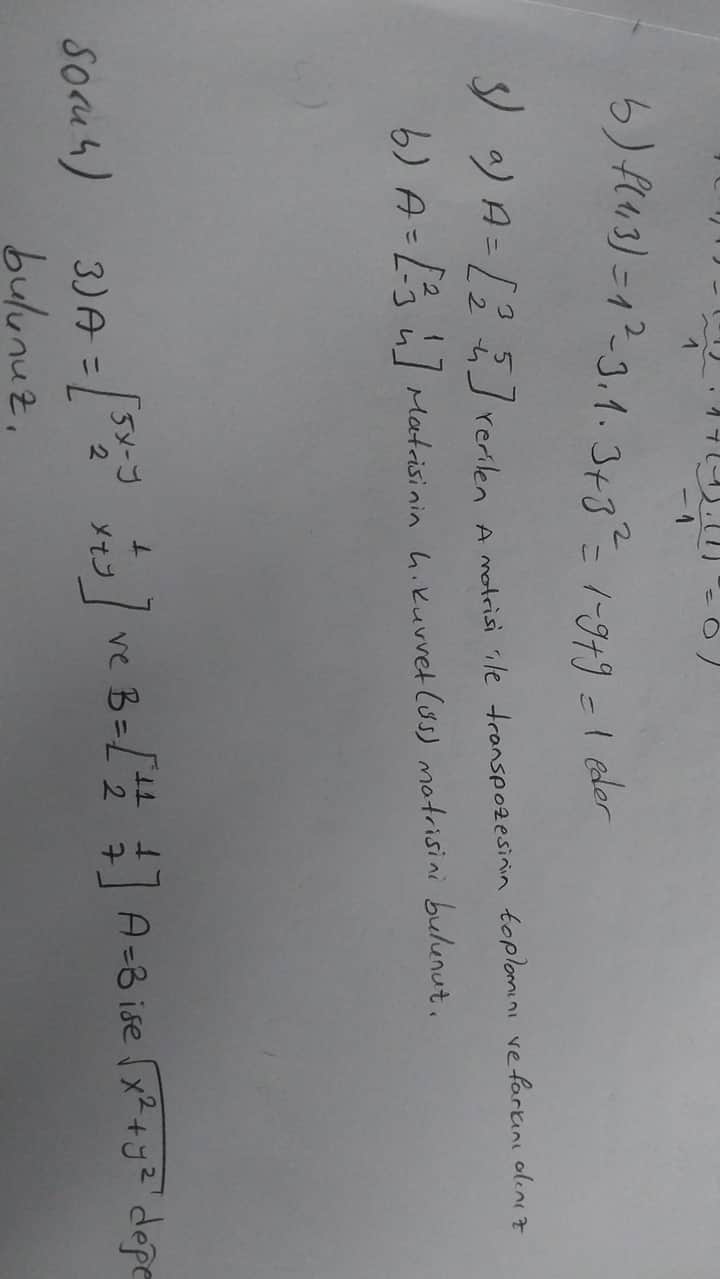 b) f(1,3) = 1² - 3.1.3 + 3² = 1 - 9 + 9 = 1 eder
a) A = [3 5 2 4] verilen A matrisi ile transpozesinin toplamını ve farkını alınız
b) A = [2 1 -3 4] Matrisinin 4. kuvvet (üs) matrisini bulunuz.
Soru 4) 3) A = [5x-y 1 2 x+y] ve B = [11 1 2 7] A = B ise √x²+y² değe
bulunuz.